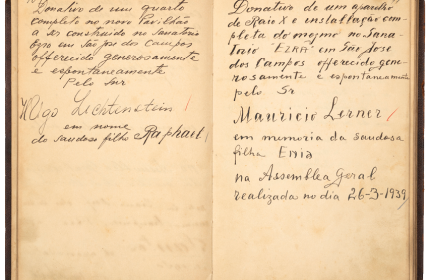 Donativo de um quarto
completo no novo Pavilhão
a ser construido no Sanatorio
Ezra em São José dos Campos
offerecido generosamente
e espontaneamente
Pelo Snr
Lichtenstein
em nome
do saudoso filho Raphael
Donativo de um aparelho
de Raio X e installação com
pleta do mesmo no Sana-
torio "EZRA" em São José
dos Campos offerecido gene-
rosamente e espontaneamente
pelo Sr
Mauricio Lerner
em memoria da saudosa
filha
na Assemblea Geral
realizada no dia 26-3-1939